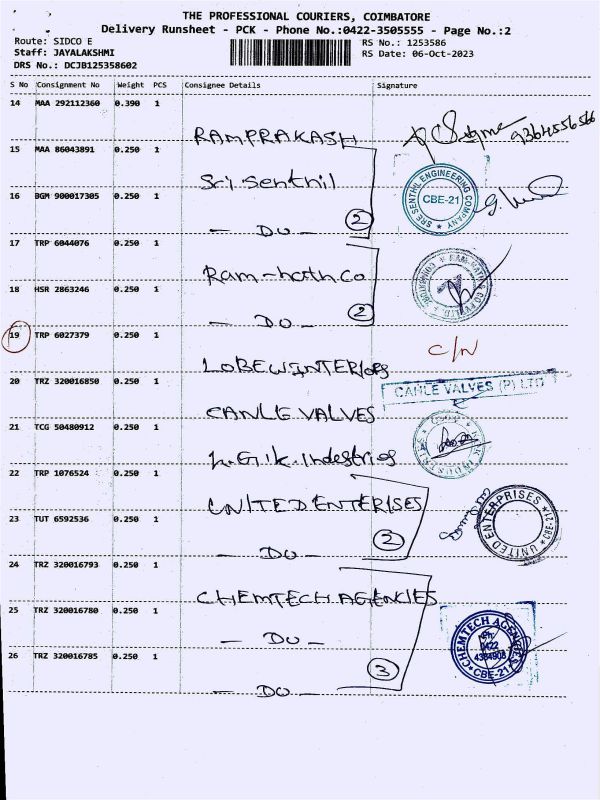 THE PROFESSIONAL COURIERS, COIMBATORE
Delivery Runsheet - PCK - Phone No.:0422-3505555 - Page No.:2
Route: SIDCO E
Staff: JAYALAKSHMI
DRS No.: DCJB125358602
RS No.: 1253586
RS Date: 06-Oct-2023
S No Consignment No Weight PCS Consignee Details Signature
14 MAA 292112360 0.390 1
RAMPRAKASH 9364556566
15 MAA 86043891 0.250 1
Sri Senthil
SRE SENTHIL ENGINEERING COMPANY
CBE-21
16 BGM 900017305 0.250 1
- DO - 2
17 TRP 6044076 0.250 1
Ram-hath Co
18 HSR 2863246 0.250 1
- DO - 2
19 TRP 6027379 0.250 1
C/N
LOBEWINTERIORS
20 TRZ 320016850 0.250 1
CANLE VALVES (P) LTD
CANLE VALVES
21 TCG 50480912 0.250 1
Industries
22 TRP 1076524 0.250 1
UNITED ENTERISES
UNITED ENTERPRISES
CBE-21
23 TUT 6592536 0.250 1
- DO - 2
24 TRZ 320016793 0.250 1
CHEMTECH AGENCIES
25 TRZ 320016780 0.250 1
- DO -
CHEMTECH AGENCIES
Ph:
0422
CBE-21
26 TRZ 320016785 0.250 1
- DO - 3